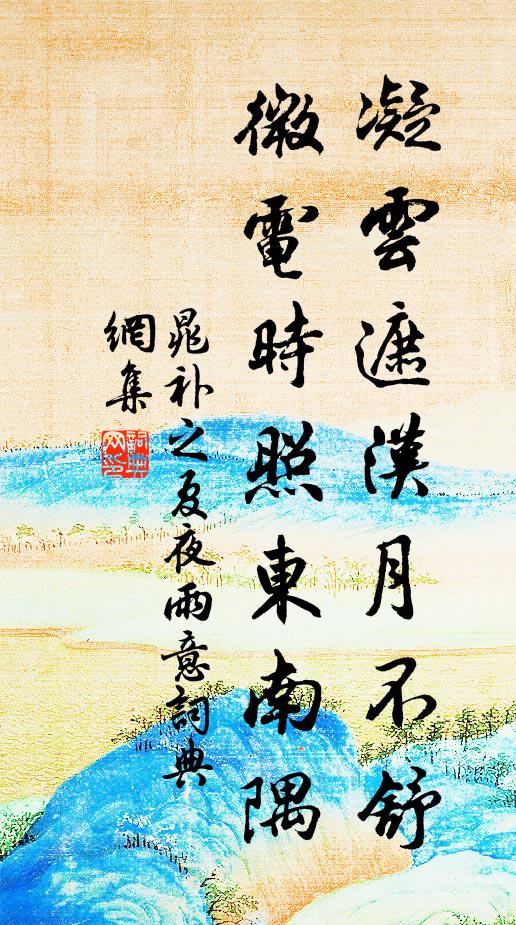 凝雲遮漢月不舒
微電時照東南隅
晁補之夏夜雨意詞典
網集